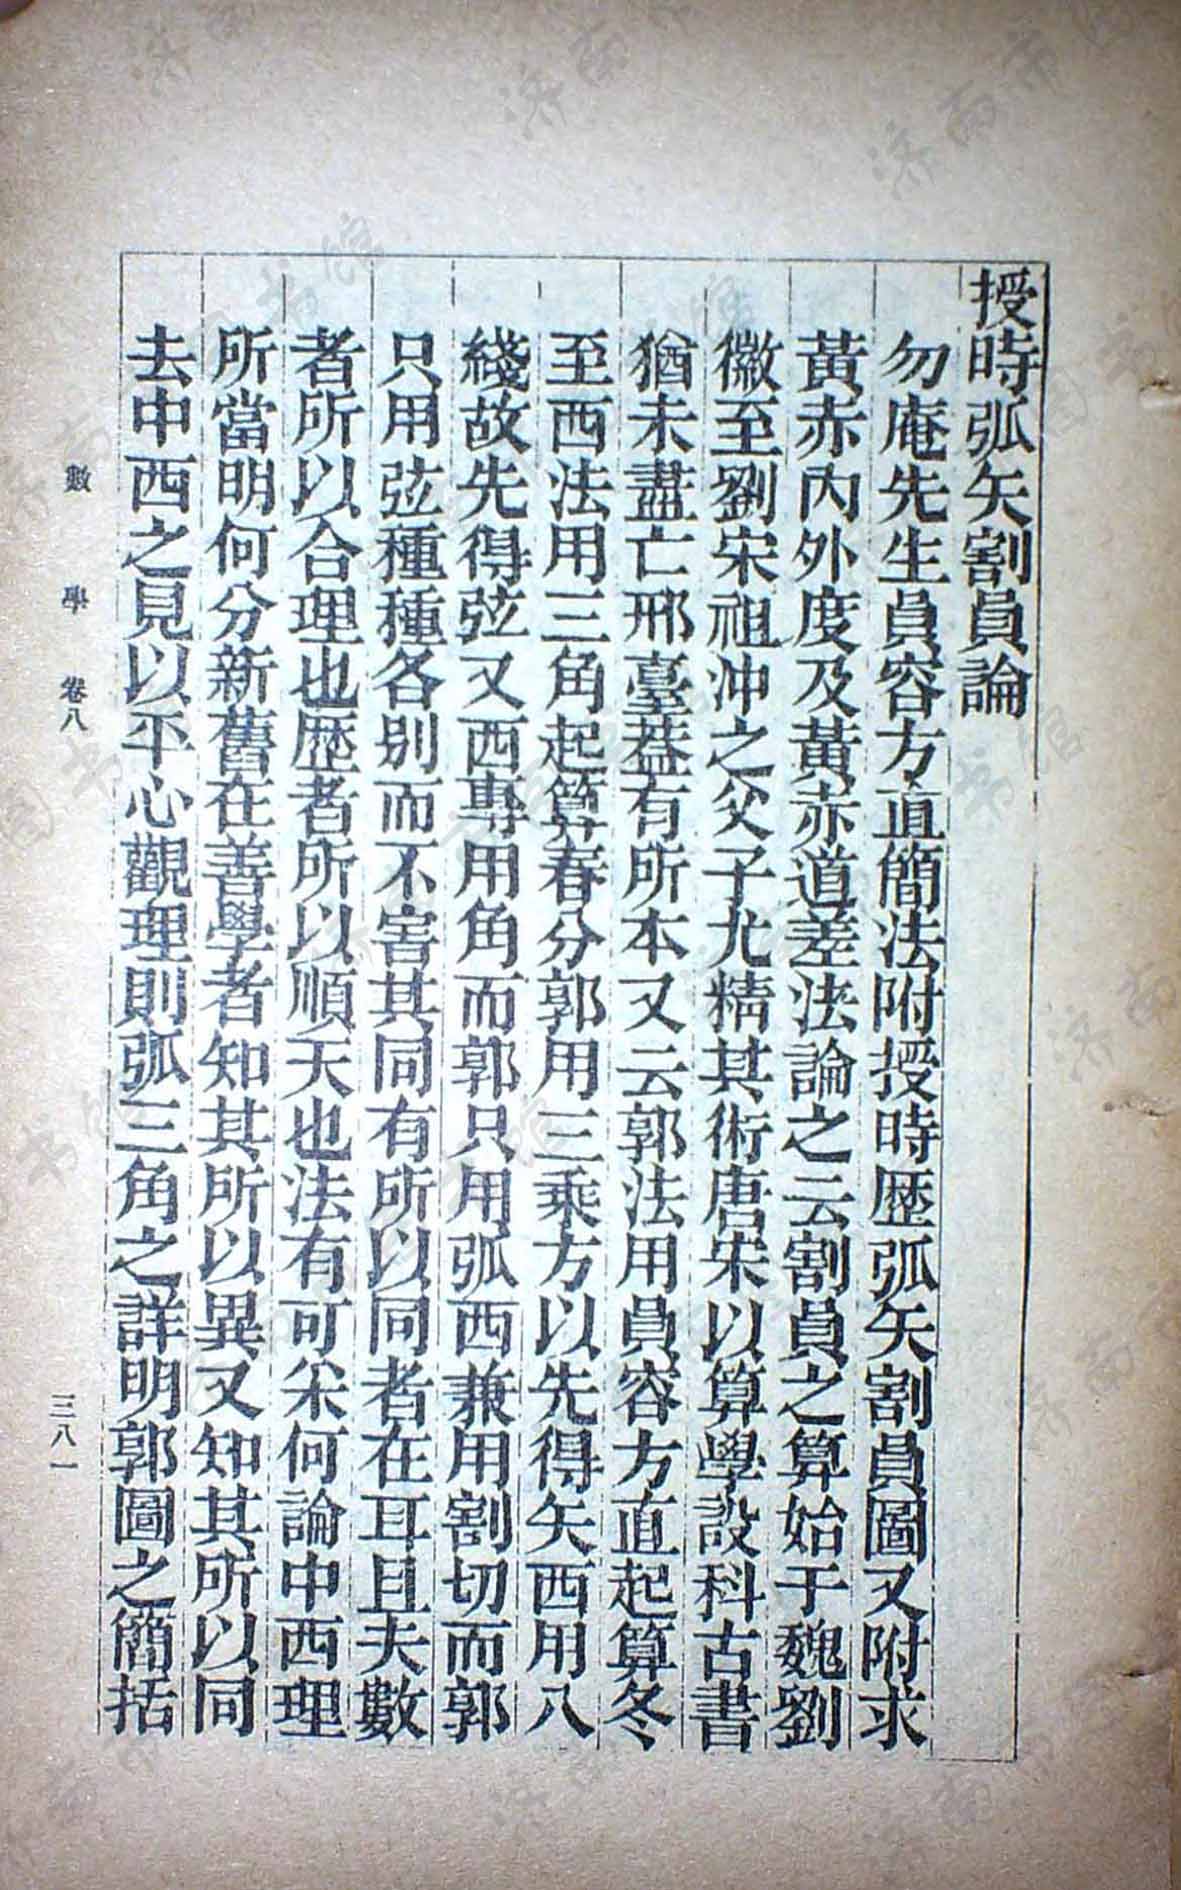 授時弧矢割員論
勿庵先生員容方直簡法附授時歷弧矢割員圖又附求
黃赤內外度及黃赤道差法論之云割員之算始于魏劉
徽至劉宋祖沖之父子尤精其術唐宋以算學設科古書
猶未盡亡邢臺葢有所本又云郭法用員容方直起算冬
至西法用三角起算春分郭用三乘方以先得矢西用八
綫故先得弦又西專用角而郭只用弧西兼用割切而郭
只用弦種種各別而不害其同有所以同者在耳且夫數
者所以合理也歷者所以順天也法有可采何論中西理
所當明何分新舊在善學者知其所以異又知其所以同
去中西之見以平心觀理則弧三角之詳明郭圖之簡括
數學 卷八
三八一
济南市图书馆